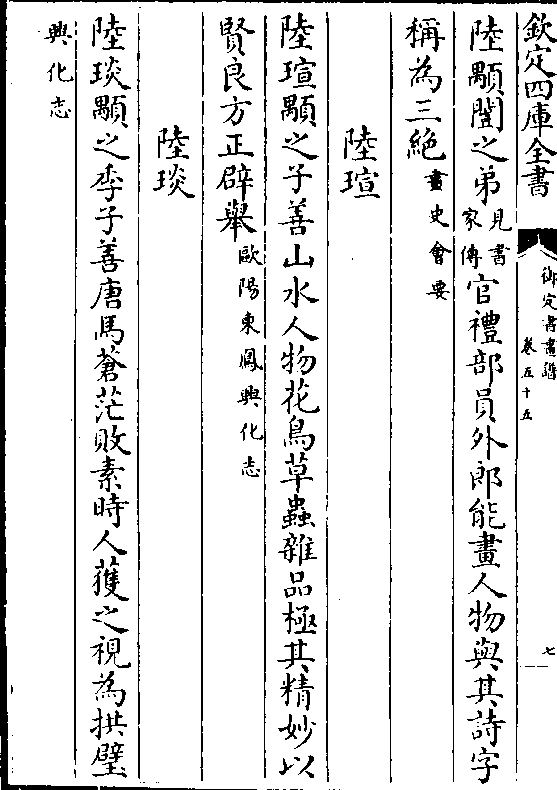 欽定四庫全書
御定書畫譜
卷五十五
七
陸顒闓之弟見書家傳官禮部員外郎能畫人物與其詩字
稱為三絶畫史會要
陸瑄
陸瑄顒之子善山水人物花鳥草蟲雜品極其精妙以
賢良方正辟舉歐陽東鳳興化志
陸琰
陸琰顒之季子善唐馬蒼茫敗素時人獲之視為拱璧
興化志